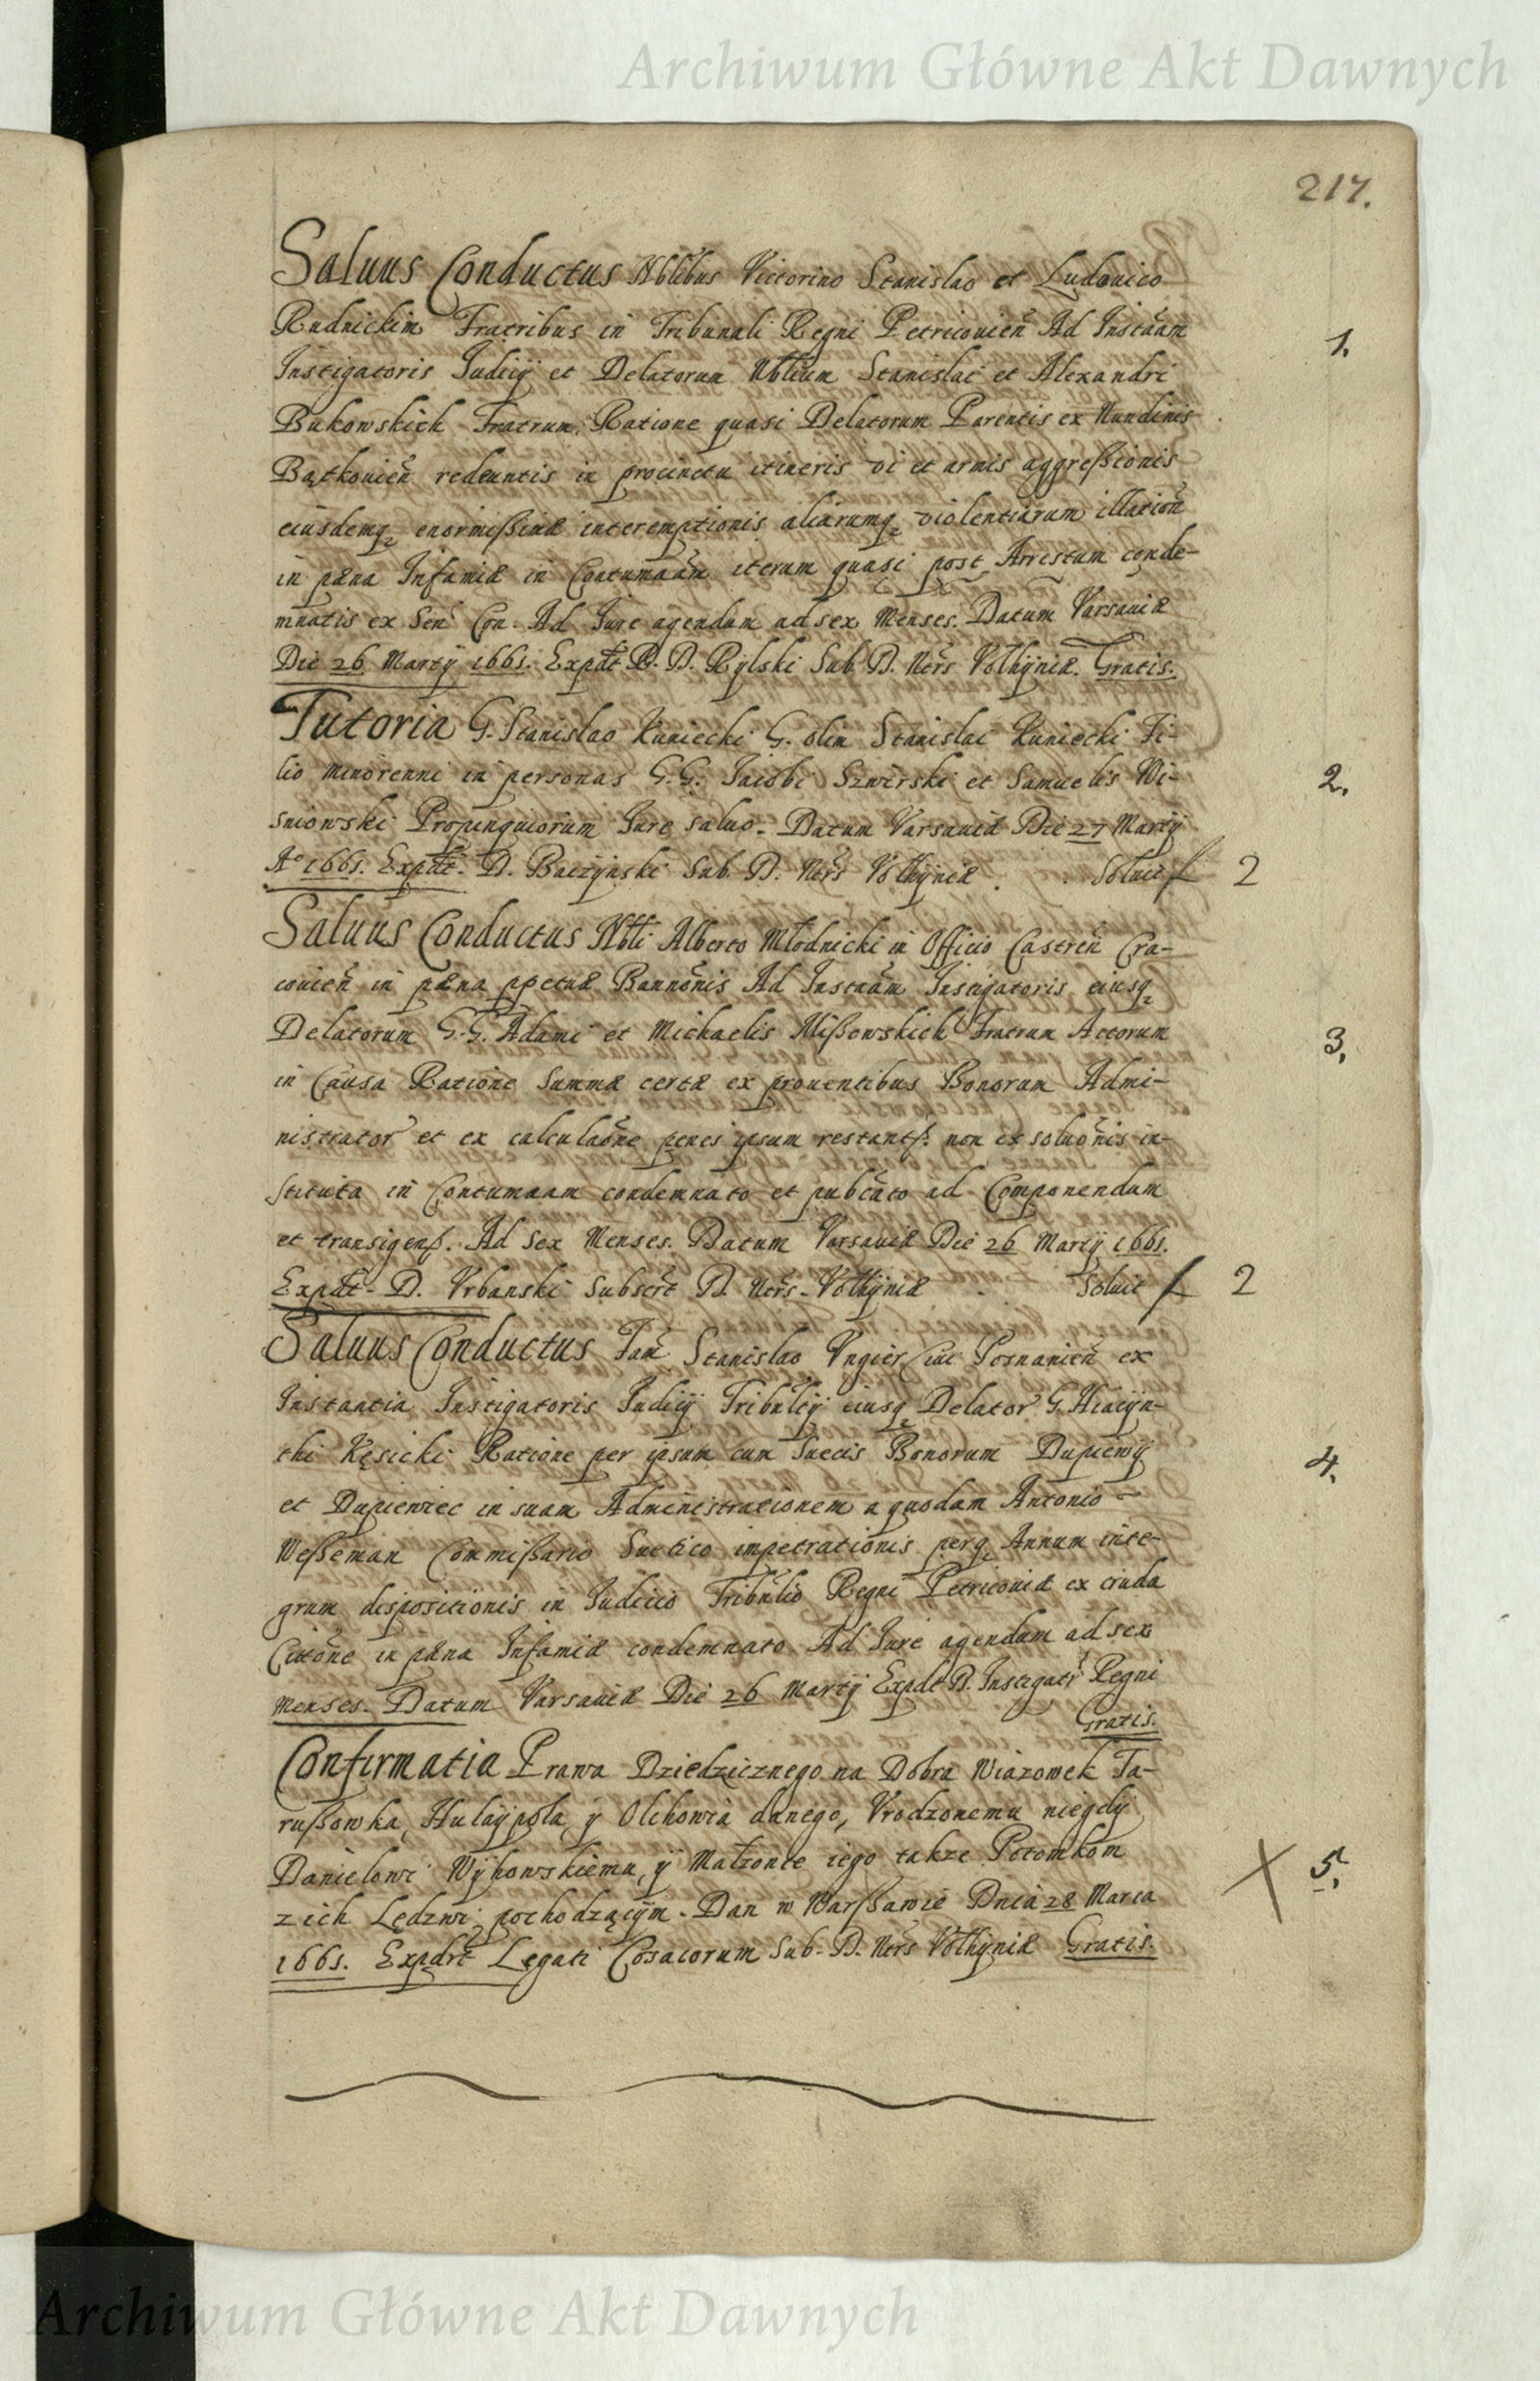 Archiwum Główne Akt Dawnych
217.
Saluus Conductus Nblibus Victorino Stanislao et Ludouico
Rudnickim Fratribus in Tribunali Regni Petricouien Ad Instaam
Instigatoris Judicij et Delatorum Nblium Stanislai et Alexandri
1.
Bukowskich Fratrum, Ratione quasi Delatorum Parentis ex Nundinis
Bątkouien redeuntis in procinctu itineris vi et armis aggreßionis
eiusdemq enormißimæ interemptionis aliarumq violentiarum illation
in pæna Infamiæ in Contumaam iterum quasi post Arrestum conde-
mnatis ex Sen Con. Ad Jure agendum ad sex Menses. Datum Varsauiæ
Die 26 Martij 1661. Expdt R. D. Rylski Sub D. Nors Volhyniæ. Gratis.
Tutoria G. Stanislao Kuniecki G. olim Stanislai Kuniecki Fi-
lio minorenni in personas G.G. Jacobi Szwirski et Samuelis Wi-
2.
sniowski Propinquiorum Jure saluo. Datum Varsauiæ Die 27 Martij
Ao 1661. Expdt. D. Baczynski Sub D. Nors Volhyniæ. Soluit f 2
Saluus Conductus Nbli Alberto Młodnicki in Officio Castren Cra-
couien in pæna ppetuæ Bannonis Ad Instaam Instigatoris eiusq
Delatorum G.G. Adami et Michaelis Mißowskich Fratrum Actorum
3.
in Causa Ratione Summæ certæ ex prouentibus Bonorum Admi-
nistrator et ex calculaone penes ipsum restant. non exsoluonis in-
stituta in Contumaam condemnato et pubcato ad Componendum
et transigend. Ad Sex Menses. Datum Varsauiæ Die 26 Martij 1661.
Expdt. D. Vrbanski Subscrt D. Nors. Volhyniæ Soluit f 2
Saluus Conductus Fam Stanislao Vngier Ciui Posnanien ex
Instantia Instigatoris Judicij Tribultij eiusq Delator G. Hiacyn-
thi Kęsicki Ratione per ipsum cum Suecis Bonorum Dupiewy
4.
et Dupiewiec in suam Administrationem a quodam Antonio
Weßeman Commißario Suetico impetrationis perq Annum inte-
grum dispositionis in Judicio Tribulio Regni Petricouiæ ex cruda
Citone in pæna Infamiæ condemnato. Ad Jure agendum ad sex
Menses. Datum Varsauiæ Die 26 Martij Expdt D. Instigatr Regni
Gratis.
Confirmatia Prawa Dziedzicznego na Dobra Wiazowek Ta-
rußowka, Hulaypola, y Olchowia danego, Vrodzonemu niegdy
Danielowi Wyhowskiemu, y Małzonce iego takze Potomkom
X 5.
z ich Lędzwi pochodzącym. Dan w Warßawie Dnia 28 Marca
1661. Expdrt Legati Cosacorum Sub. D. Nors Volhyniæ Gratis.
Archiwum Główne Akt Dawnych